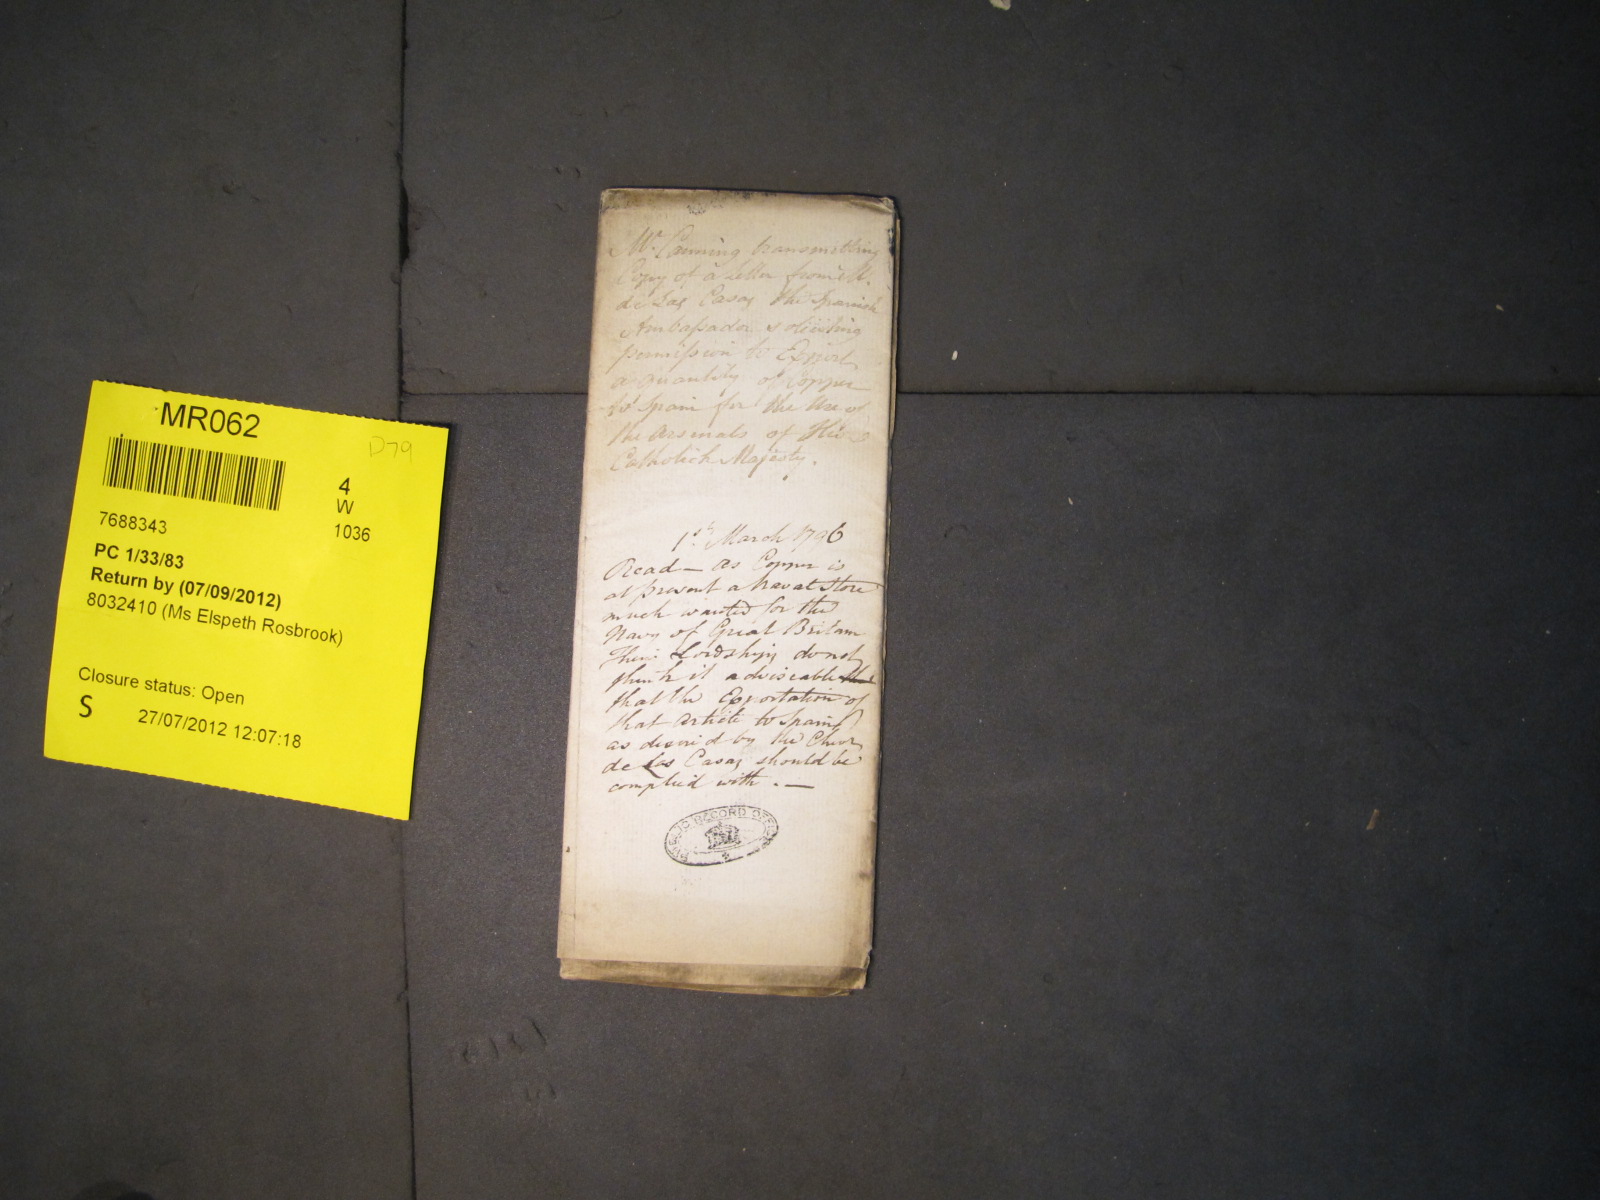 MR062
D79
4
W
1036
7688343
PC 1/33/83
Return by (07/09/2012)
8032410 (Ms Elspeth Rosbrook)
Closure status: Open
S
27/07/2012 12:07:18
Mr. Canning transmitting
Copy of a Letter from M.
de Las Casas the Spanish
Ambassador soliciting
permission to Export
a quantity of Copper
to Spain for the Use of
the Arsenals of His
Catholick Majesty.
1st March 1796
Read — As Copper is
at present a Naval Store
much wanted for the
Navy of Great Britain
Their Lordships do not
think it adviseable
that the Exportation of
that Article to Spain
as desired by the Chevr.
de Las Casas should be
complied with . —
PUBLIC RECORD OFFICE